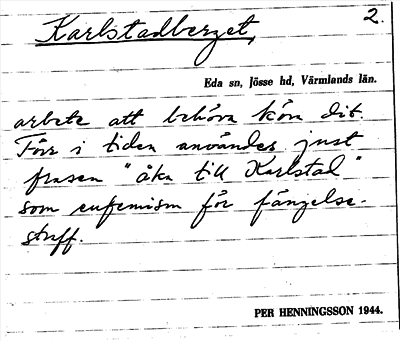 Karlstadberget, 2.
Eda sn, Jösse hd, Värmlands län.
arbete att behöva köra dit.
Förr i tiden användes just
frasen "åka till Karlstad"
som eufemism för fängelse-
straff.
PER HENNINGSSON 1944.